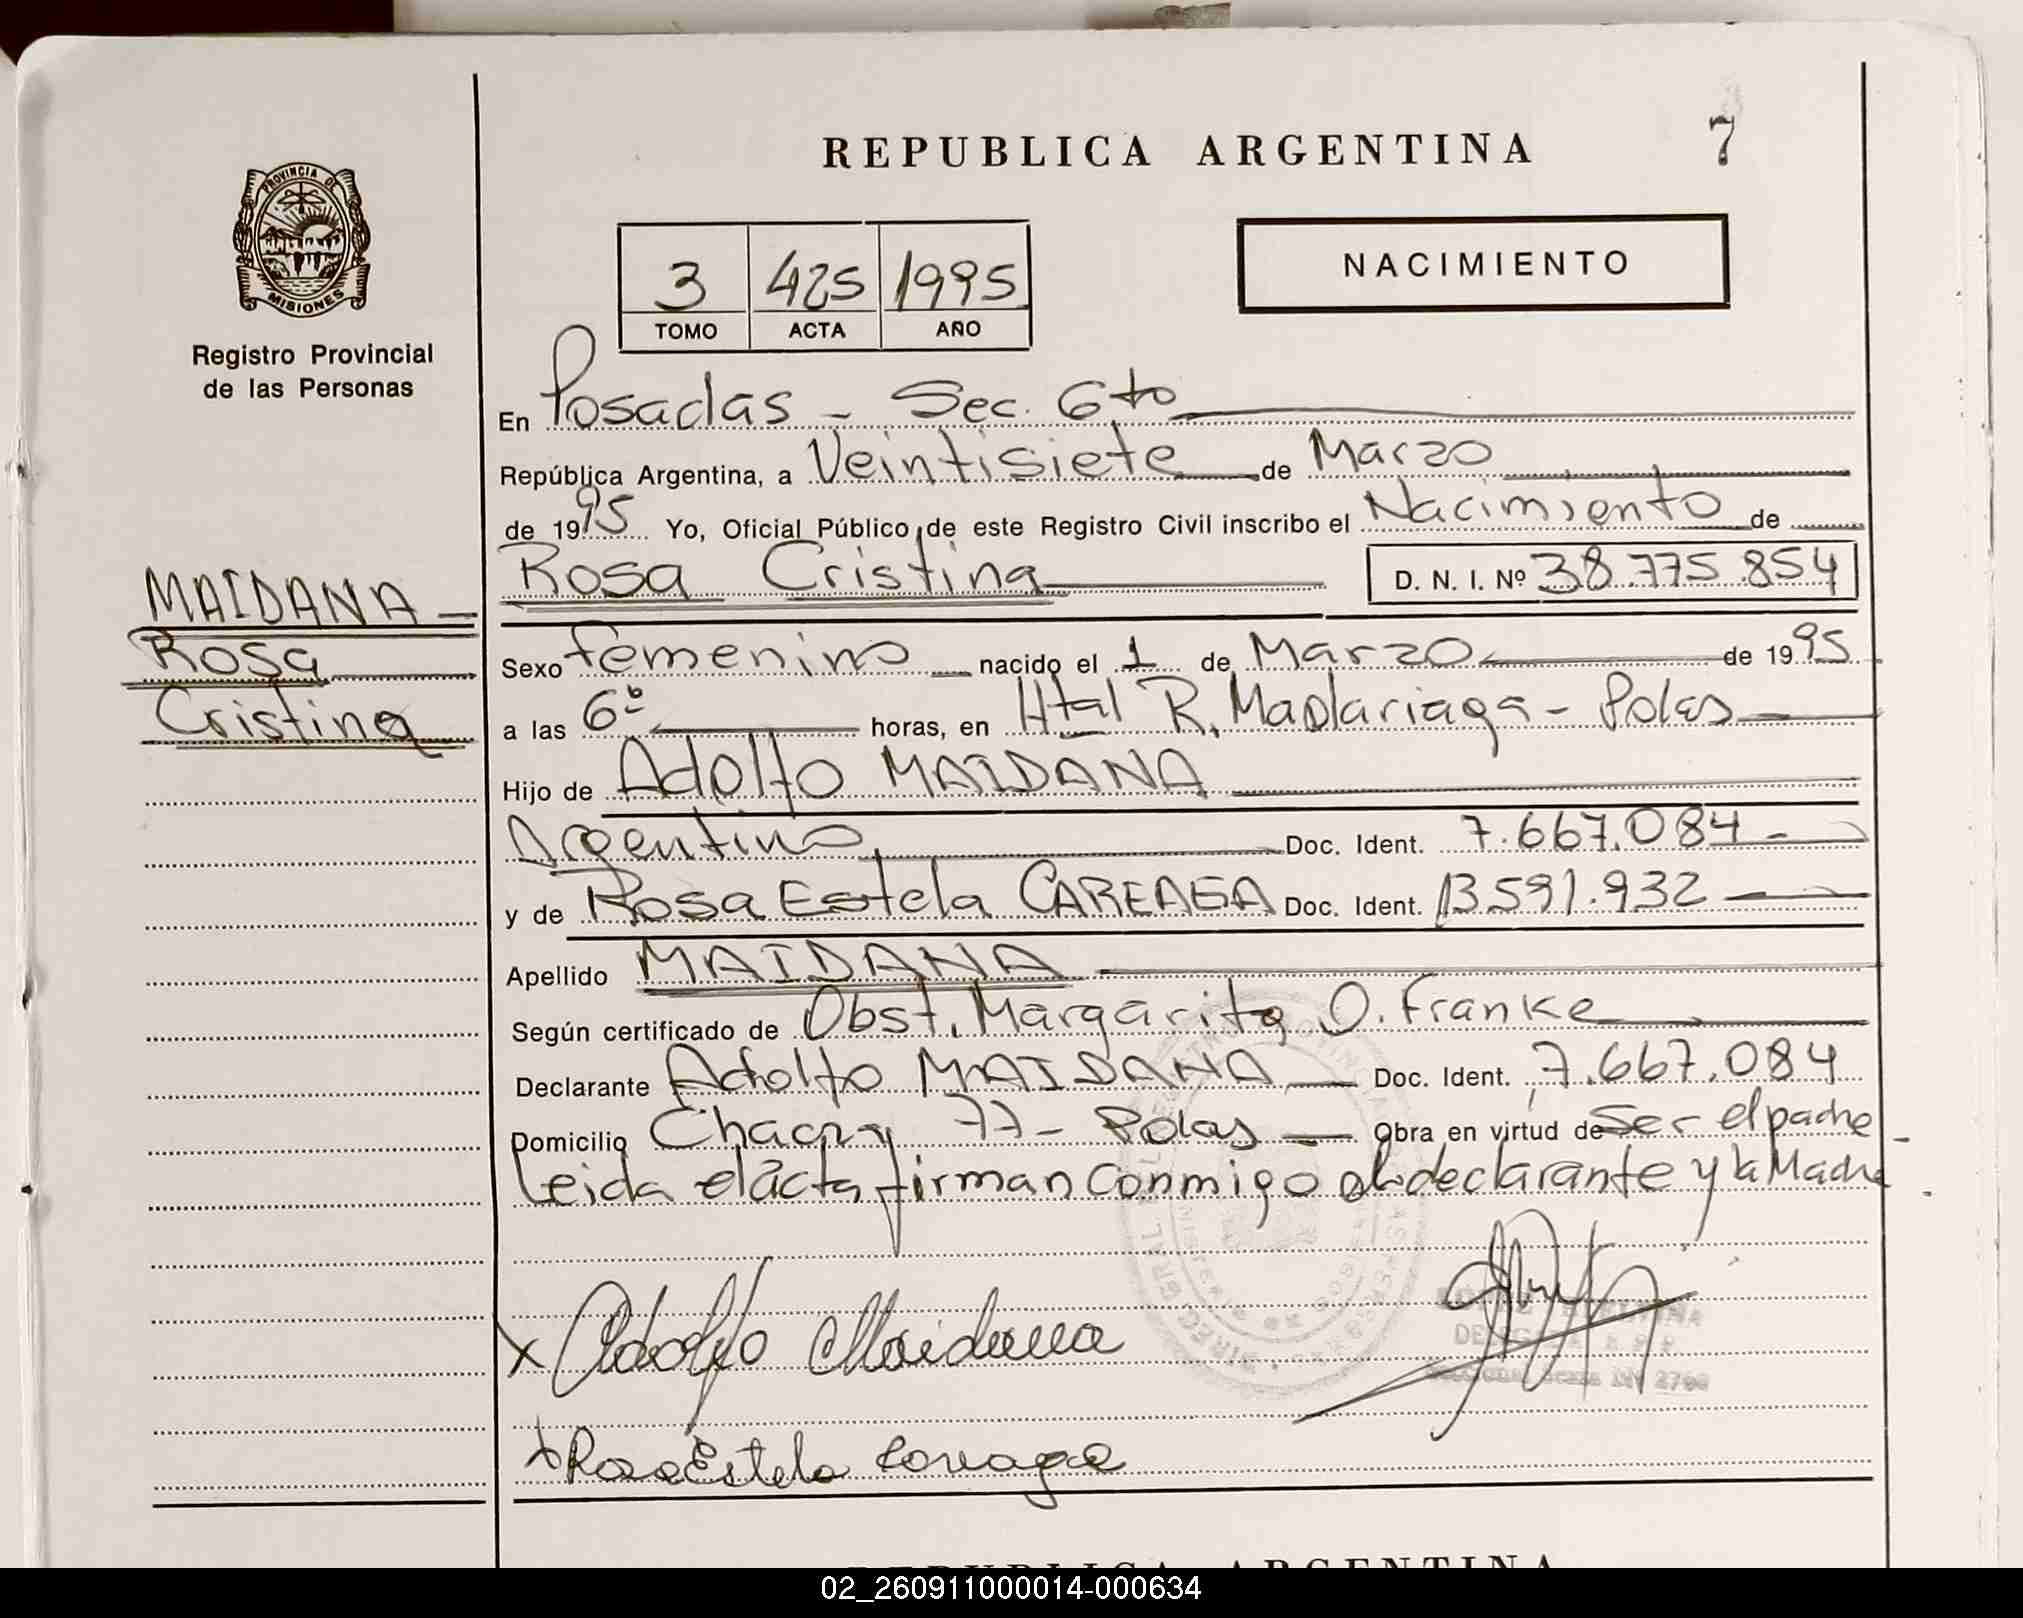 REPUBLICA ARGENTINA
7
PROVINCIA DE
MISIONES
Registro Provincial
de las Personas
3 425 1995
TOMO ACTA AÑO
NACIMIENTO
En Posadas - Sec. 6to
República Argentina, a Veintisiete de Marzo
de 1995 Yo, Oficial Público de este Registro Civil inscribo el Nacimiento de
Rosa Cristina D. N. I. Nº 38.775.854
MAIDANA
Rosa
Cristina
Sexo femenino nacido el 1 de Marzo de 1995
a las 6º horas, en Htal R. Madariaga - Pdas
Hijo de Adolfo MAIDANA
Argentino Doc. Ident. 7.667.084
y de Rosa Estela CAREAGA Doc. Ident. 13.591.932
Apellido MAIDANA
Según certificado de Obst. Margarita O. Franke
Declarante Adolfo MAIDANA Doc. Ident. 7.667.084
Domicilio 77 - Pdas Obra en virtud de Ser el padre
Leida el acta firman conmigo el declarante y la Madre
x Adolfo Maidana
x Rosa Estela Careaga
REPUBLICA ARGENTINA
02_260911000014-000634